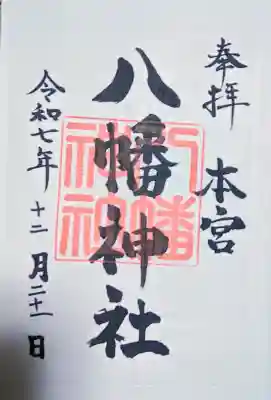 奉拝
本宮
八幡神社
令和七年十二月二十一日
八幡神社